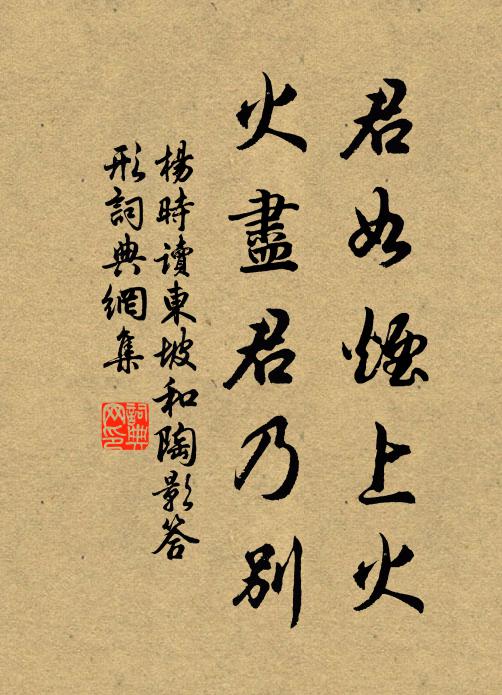 君如煙上火
火盡君乃別
楊時讀東坡和陶影答
形詞典網集
詞典
网印